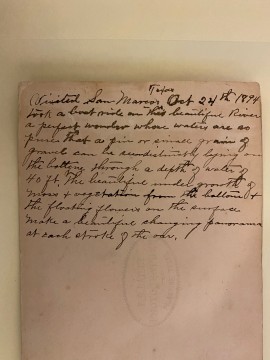 Texas
Visited San Marcos Oct 24th 1894
took a boat ride on this beautiful River
a perfect wonder whose waters are so
pure that a pin or small grain of
gravel can be distinctly lying on
the bottom through a depth of water of
40 ft. The beautiful under growth of
moss & vegetation from the bottom &
the floating flowers on the surface
make a beautiful changing panorama
at each stroke of the oar.